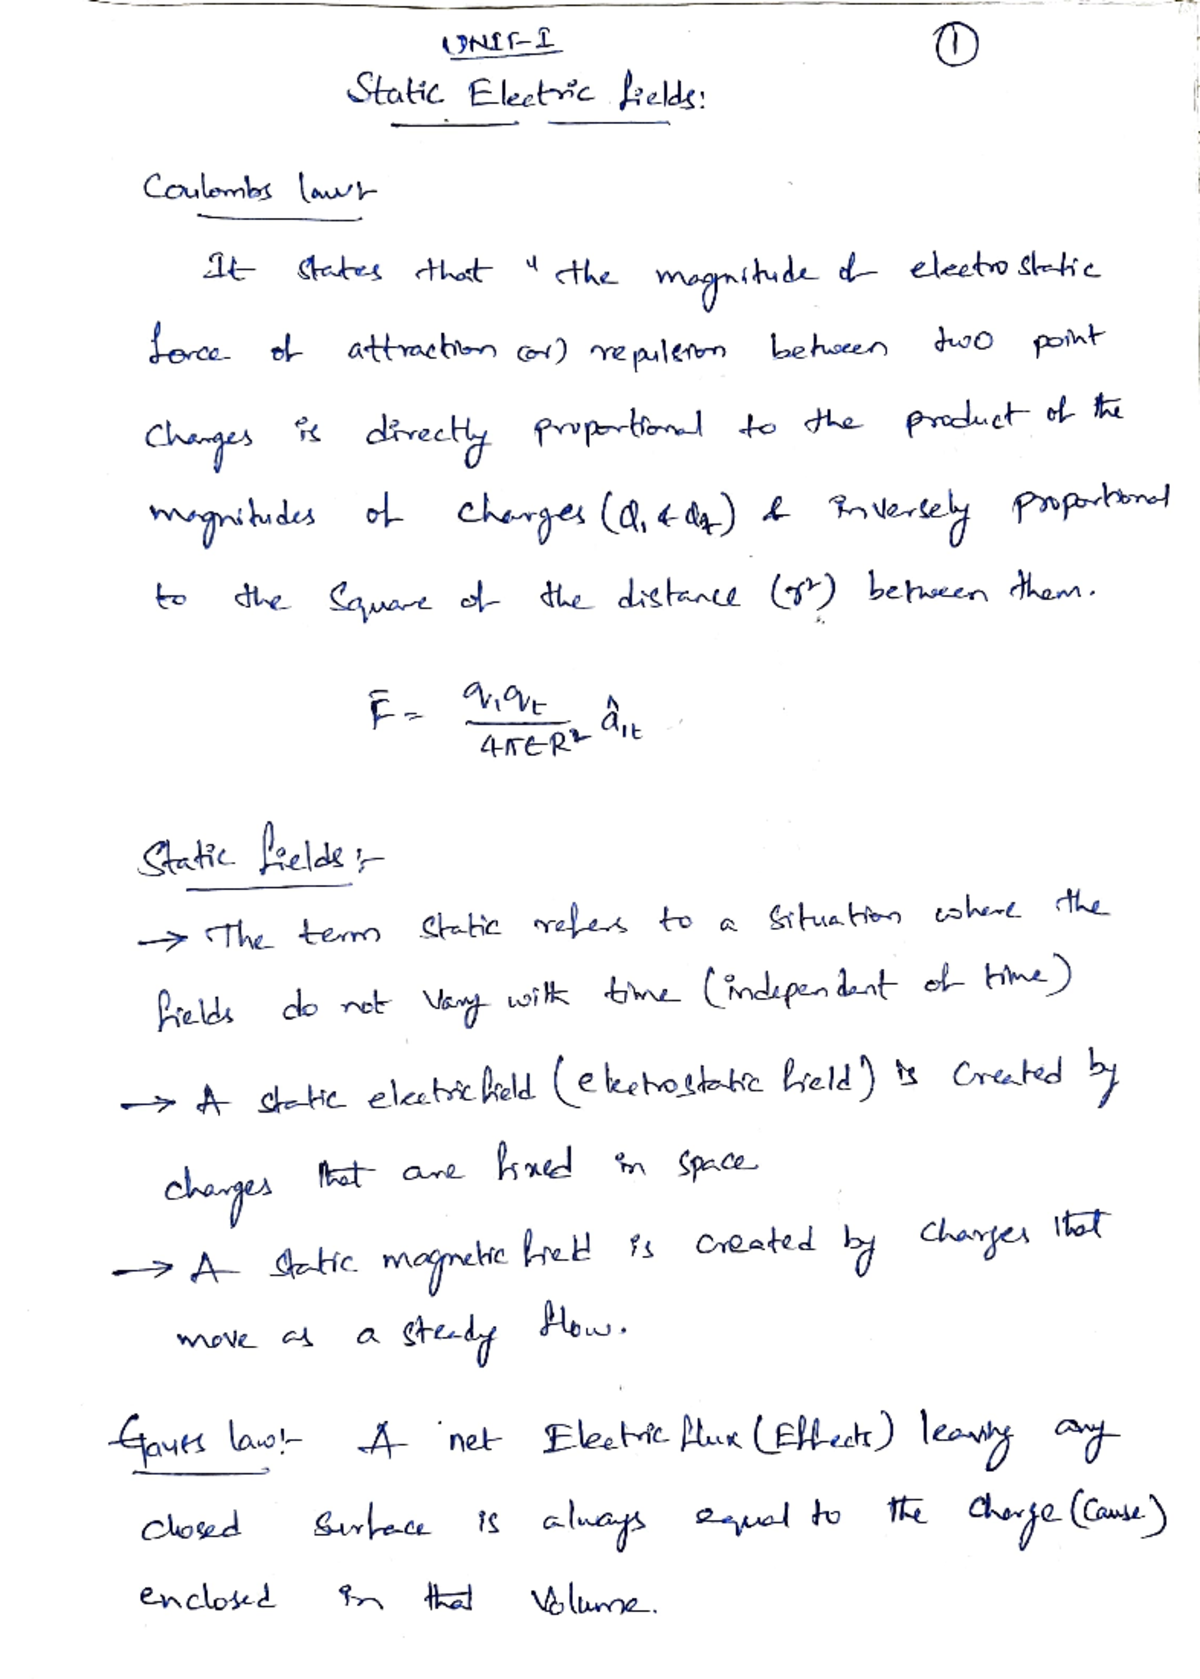 UNIT-I
①
Static Electric fields:
Coulombs law:-
It states that "the magnitude of electrostatic
force of attraction (or) repulsion between two point
charges is directly proportional to the product of the
magnitudes of charges (Q₁ & Q₂) & inversely proportional
to the square of the distance (r²) between them.
F̄ = q₁qₜ / 4πϵR² â₁ₜ
Static fields:-
→ The term static refers to a situation where the
fields do not vary with time (independent of time)
→ A static electric field (electrostatic field) is created by
charges that are fixed in space
→ A static magnetic field is created by charges that
move as a steady flow.
Gauss law:- A net Electric flux (Effects) leaving any
closed surface is always equal to the charge (Cause)
enclosed in that volume.